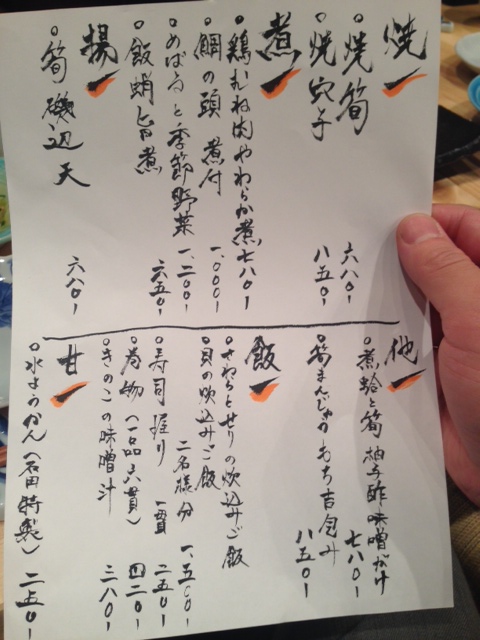 焼
○焼筍 六八〇-
○焼穴子 八五〇-
煮
○鶏むね肉やわらか煮 七八〇-
○鯛の頭 煮付 一、〇〇〇-
○めばると季節野菜 一、二〇〇-
○飯蛸旨煮 六五〇-
揚
○筍 磯辺天 六八〇-
他
○煮蛤と筍 柚子酢味噌がけ 七八〇-
○筍まんじゅう もち吉包み 八五〇-
飯
○さわらとせりの炊込みご飯
○貝の炊込みご飯
二名様分 一、五〇〇-
○寿司握り 一貫 二五〇-
○巻物(一品六貫) 四二〇-
○きのこの味噌汁 三八〇-
甘
○水ようかん(石田特製) 二五〇-